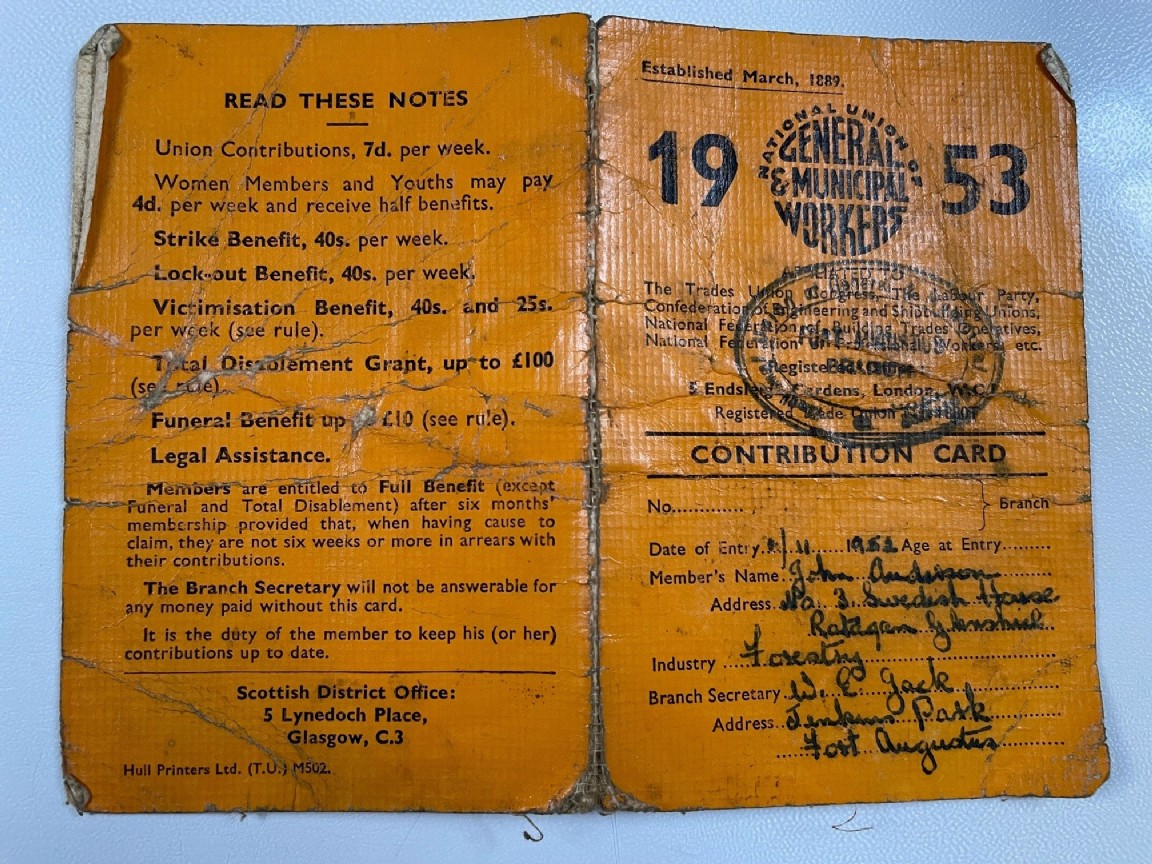 READ THESE NOTES
Union Contributions, 7d. per week.
Women Members and Youths may pay
4d. per week and receive half benefits.
Strike Benefit, 40s. per week.
Lock-out Benefit, 40s. per week.
Victimisation Benefit, 40s. and 25s.
per week (see rule).
Total Disablement Grant, up to £100
(see rule).
Funeral Benefit up to £10 (see rule).
Legal Assistance.
Members are entitled to Full Benefit (except
Funeral and Total Disablement) after six months'
membership provided that, when having cause to
claim, they are not six weeks or more in arrears with
their contributions.
The Branch Secretary will not be answerable for
any money paid without this card.
It is the duty of the member to keep his (or her)
contributions up to date.
Scottish District Office:
5 Lynedoch Place,
Glasgow, C.3
Hull Printers Ltd. (T.U.) M502.
Established March, 1889.
19 53
NATIONAL UNION OF
GENERAL
& MUNICIPAL
WORKERS
AFFILIATED TO
The Trades Union Congress, The Labour Party,
Confederation of Engineering and Shipbuilding Unions,
National Federation of Building Trades Operatives,
National Federation of Professional Workers, etc.
Registered Office
5 Endsleigh Gardens, London, W.C.1
Registered Trade Union
CONTRIBUTION CARD
No............. } Branch
Date of Entry 11 1952 Age at Entry.........
Member's Name John Anderson
Address No. 3 Swedish House
Ratagan Glenshiel
Industry Forestry
Branch Secretary W. E. Jack
Address Jenkins Park
Fort Augustus